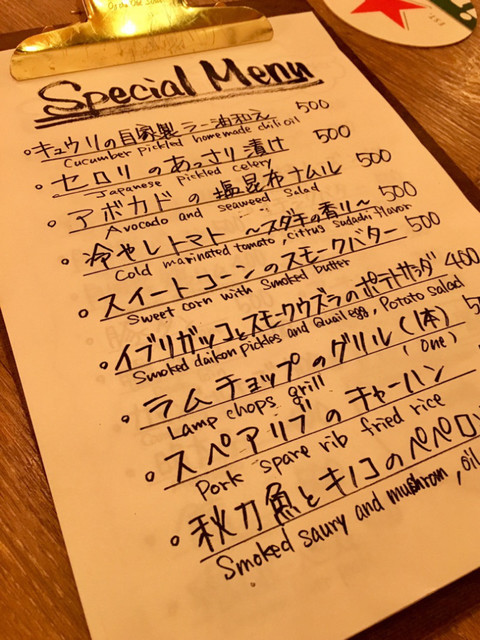 Special Menu
• キュウリの自家製ラー油和え 500
Cucumber pickled homemade chili oil
• セロリのあっさり漬け 500
Japanese pickled celery
• アボカドの塩昆布ナムル 500
Avocado and seaweed Salad
• 冷やしトマト 〜スダチの香り〜 500
Cold marinated tomato, citrus sudachi flavor
• スイートコーンのスモークバター 500
Sweet corn with smoked butter
• イブリガッコとスモークウズラのポテトサラダ 400
Smoked daikon pickles and Quail egg, Potato salad
• ラムチョップのグリル(1本)
Lamp chops grill (one)
• スペアリブのチャーハン
Pork spare rib fried rice
• 秋刀魚とキノコのペペロ
Smoked saury and mushrom, oil